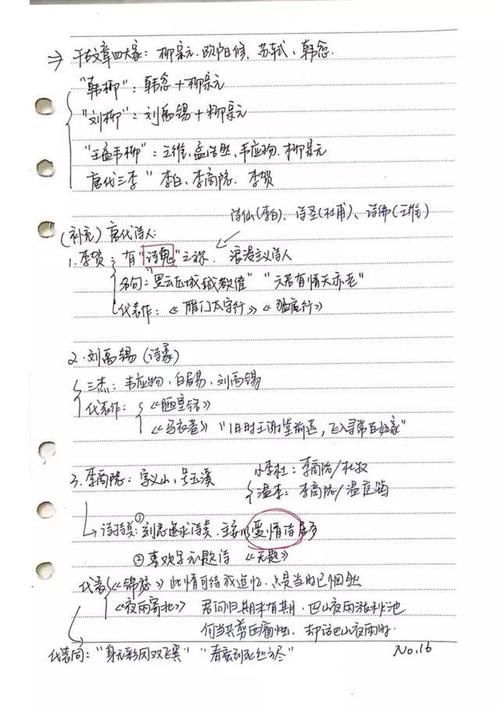 ⇒ 千古文章四大家：柳宗元、欧阳修、苏轼、韩愈.
"韩柳"：韩愈+柳宗元
"刘柳"：刘禹锡+柳宗元
"王孟韦柳"：王维、孟浩然、韦应物、柳宗元
唐代三李 " 李白、李商隐、李贺
诗仙(李白)、诗圣(杜甫)、诗佛(王维)
(补充) 唐代诗人:
1. 李贺：有"诗鬼"之称 浪漫主义诗人
名句："黑云压城城欲摧" "天若有情天亦老"
代表作：《雁门太守行》《 行》
2. 刘禹锡 (诗豪)
三杰：韦应物、白居易、刘禹锡
代表作：《陋室铭》
《乌衣巷》"旧时王谢堂前燕，飞入寻常百姓家"
3. 李商隐：字义山，号玉溪
小李杜：李商隐/杜牧
温李：李商隐/温庭筠
诗 ：① 刻意追求诗美. 爱情诗
② 喜欢写无题诗 《无题》
代表《锦瑟》 此情可待成追忆. 只是当时已惘然
《夜雨寄北》 君问归期未有期，巴山夜雨涨秋池
何当共剪西窗烛，却话巴山夜雨时
代表句："身无彩凤双飞翼" "春蚕到死丝方尽"
No.16